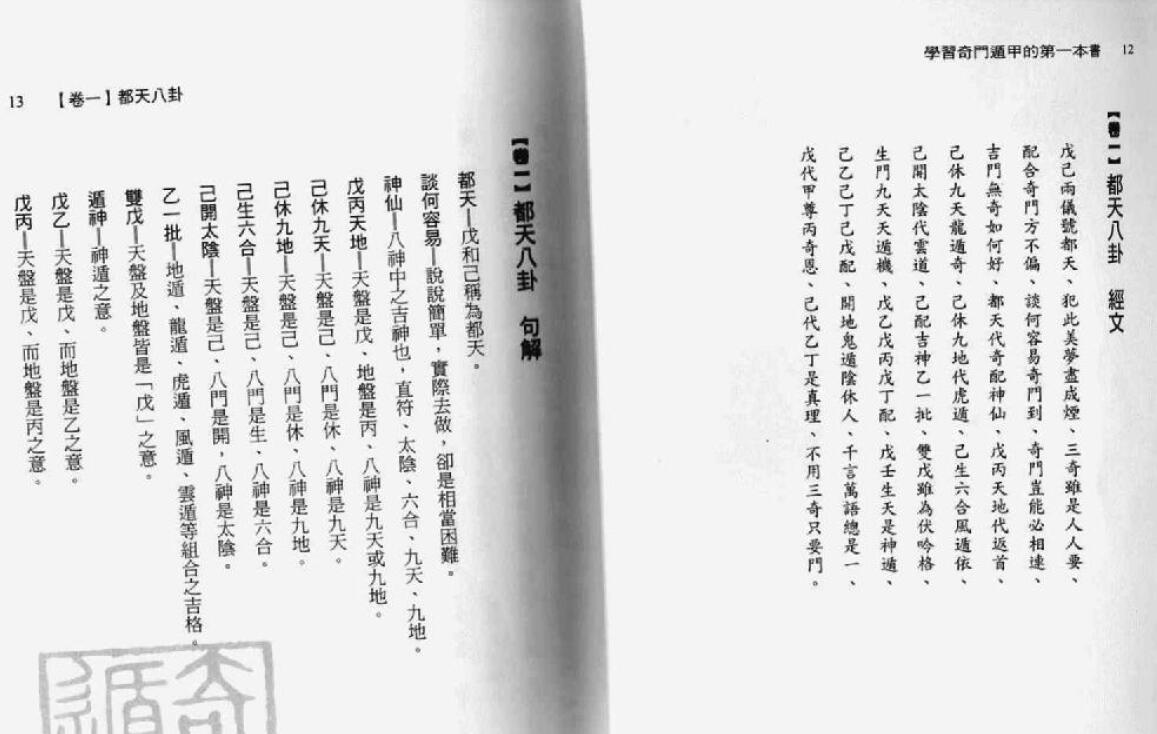 學習奇門遁甲的第一本書 12
【卷一】都天八卦 經文
戊己兩儀號都天、犯此美夢盡成煙、三奇雖是人人要、
配合奇門方不偏、談何容易奇門到、奇門豈能必相連、
吉門無奇如何好、都天代奇配神仙、戊丙天地代返首、
己休九天龍遁奇、己休九地代虎遁、己生六合風遁依、
己開太陰代雲遁、己配吉神乙一批、雙戊雖為伏吟格、
生門九天天遁機、戊乙戊丙戊丁配、戊壬生天是神遁、
己乙己丁己戊配、開地鬼遁陰休人、千言萬語總是一、
戊代甲尊丙奇恩、己代乙丁是真理、不用三奇只要門。
13 【卷一】都天八卦
【卷一】都天八卦 句解
都天—戊和己稱為都天。
談何容易—說說簡單，實際去做，卻是相當困難。
神仙—八神中之吉神也，直符、太陰、六合、九天、九地。
戊丙天地—天盤是戊、地盤是丙、八神是九天或九地。
己休九天—天盤是己、八門是休、八神是九天。
己休九地—天盤是己、八門是休、八神是九地。
己生六合—天盤是己、八門是生、八神是六合。
己開太陰—天盤是己、八門是開，八神是太陰。
乙一批—地遁、龍遁、虎遁、風遁、雲遁等組合之吉格。
雙戊—天盤及地盤皆是「戊」之意。
遁神—神遁之意。
戊乙—天盤是戊、而地盤是乙之意。
戊丙—天盤是戊、而地盤是丙之意。
奇
遁